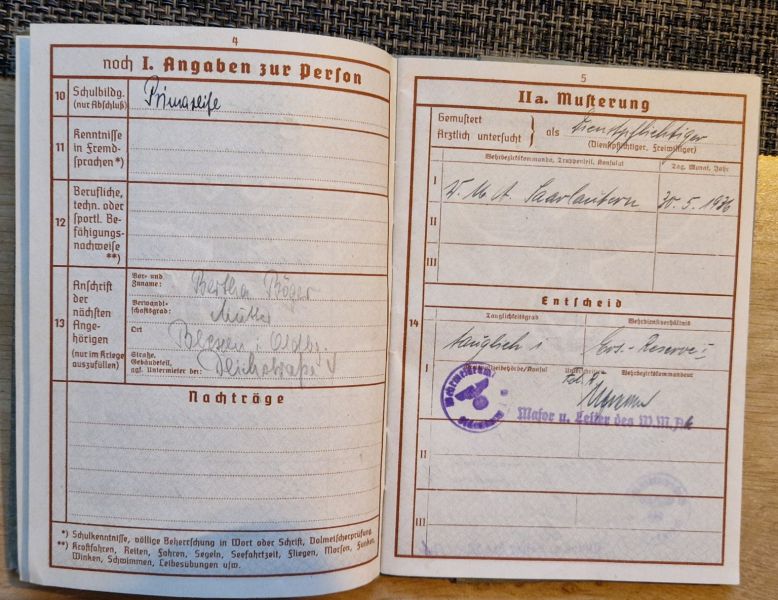 4
noch I. Angaben zur Person
10 Schulbildg. (nur Abschluß)
Primareife
11 Kenntnisse in Fremdsprachen*)
12 Berufliche, techn. oder sportl. Befähigungsnachweise **)
13 Anschrift der nächsten Angehörigen (nur im Kriege auszufüllen)
Vor- und Zuname: Bertha Böger
Verwandtschaftsgrad: Mutter
Ort Blexen i. Oldbg.
Straße, Gebäudeteil, ggf. Untermieter bei: Deichstraße
Nachträge
*) Schulkenntnisse, völlige Beherrschung in Wort oder Schrift, Dolmetscherprüfung.
**) Kraftfahren, Reiten, Fahren, Segeln, Seefahrtzeit, Fliegen, Morsen, Funken,
Winken, Schwimmen, Leibesübungen usw.
5
IIa. Musterung
Gemustert
Ärztlich untersucht } als Dienstpflichtiger
(Dienstpflichtiger, Freiwilliger)
Wehrbezirkskommando, Truppenteil, Konsulat
Tag, Monat, Jahr
I W. M. A. Saarlautern 30. 5. 1936
II
III
14
Entscheid
Tauglichkeitsgrad
Wehrdienstverhältnis
I tauglich 1 Ers.-Reserve I
Wehrbezirkskommandeur
Major u. Leiter des W.M.A.
II
III